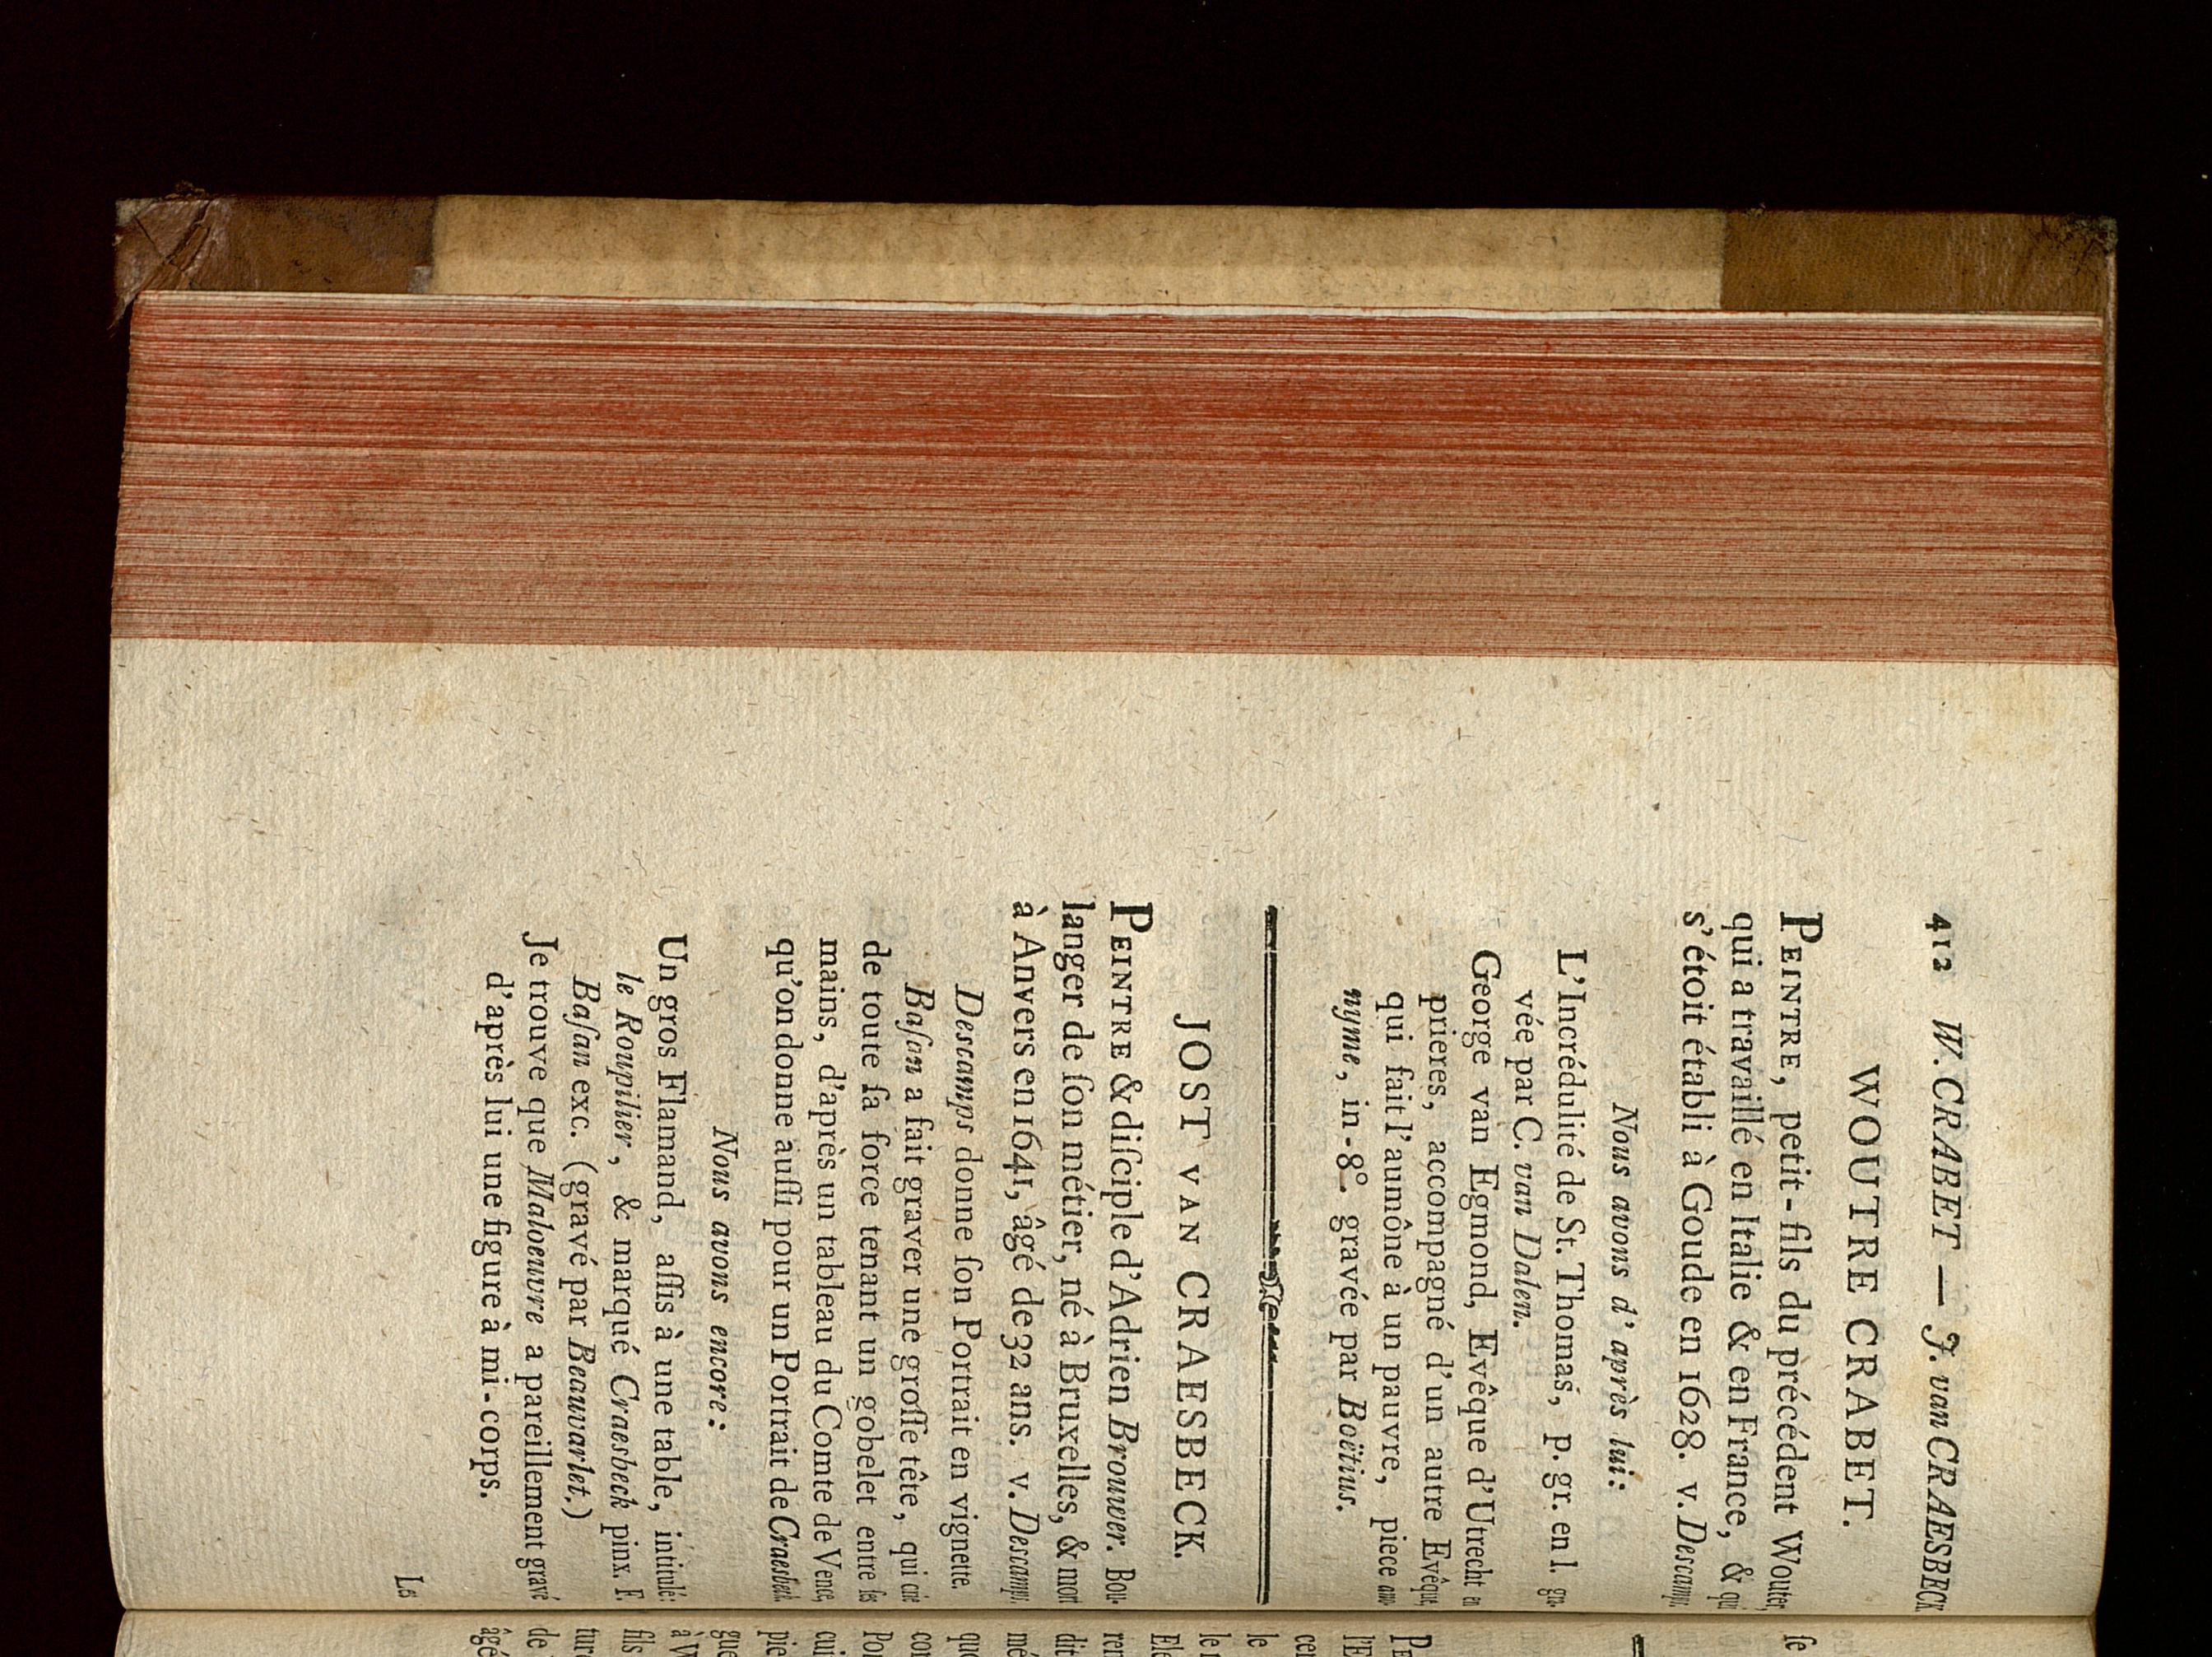 412 W. CRABET — J. van CRAESBECK
WOUTRE CRABET.
PEINTRE, petit-fils du précédent Wouter,
qui a travaillé en Italie & en France, & qui
s'étoit établi à Goude en 1628. v. Descamps.
Nous avons d'après lui:
L'Incrédulité de St. Thomas, p. gr. en l. gra-
vée par C. van Dalen.
George van Egmond, Evêque d'Utrecht en
prieres, accompagné d'un autre Evêque,
qui fait l'aumône à un pauvre, piece ano-
nyme, in-8°. gravée par Boëtius.
JOST VAN CRAESBECK.
PEINTRE & diſciple d'Adrien Brouwer. Bou-
langer de ſon métier, né à Bruxelles, & mort
à Anvers en 1641, âgé de 32 ans. v. Descamps.
Descamps donne ſon Portrait en vignette.
Baſan a fait graver une groſſe tête, qui crie
de toute ſa force tenant un gobelet entre ſes
mains, d'après un tableau du Comte de Vence,
qu'on donne auſſi pour un Portrait de Craesbeck.
Nous avons encore:
Un gros Flamand, aſſis à une table, intitulé:
le Roupilier, & marqué Craesbeck pinx. F.
Baſan exc. (gravé par Beauvarlet.)
Je trouve que Maloeuvre a pareillement gravé
d'après lui une figure à mi-corps.
Le
ſe
PE
l'E
cen
le
le
Ele
ren
dit
mé
que
cor
Por
cui
pie
gue
à W
fils
ture
de
âgé